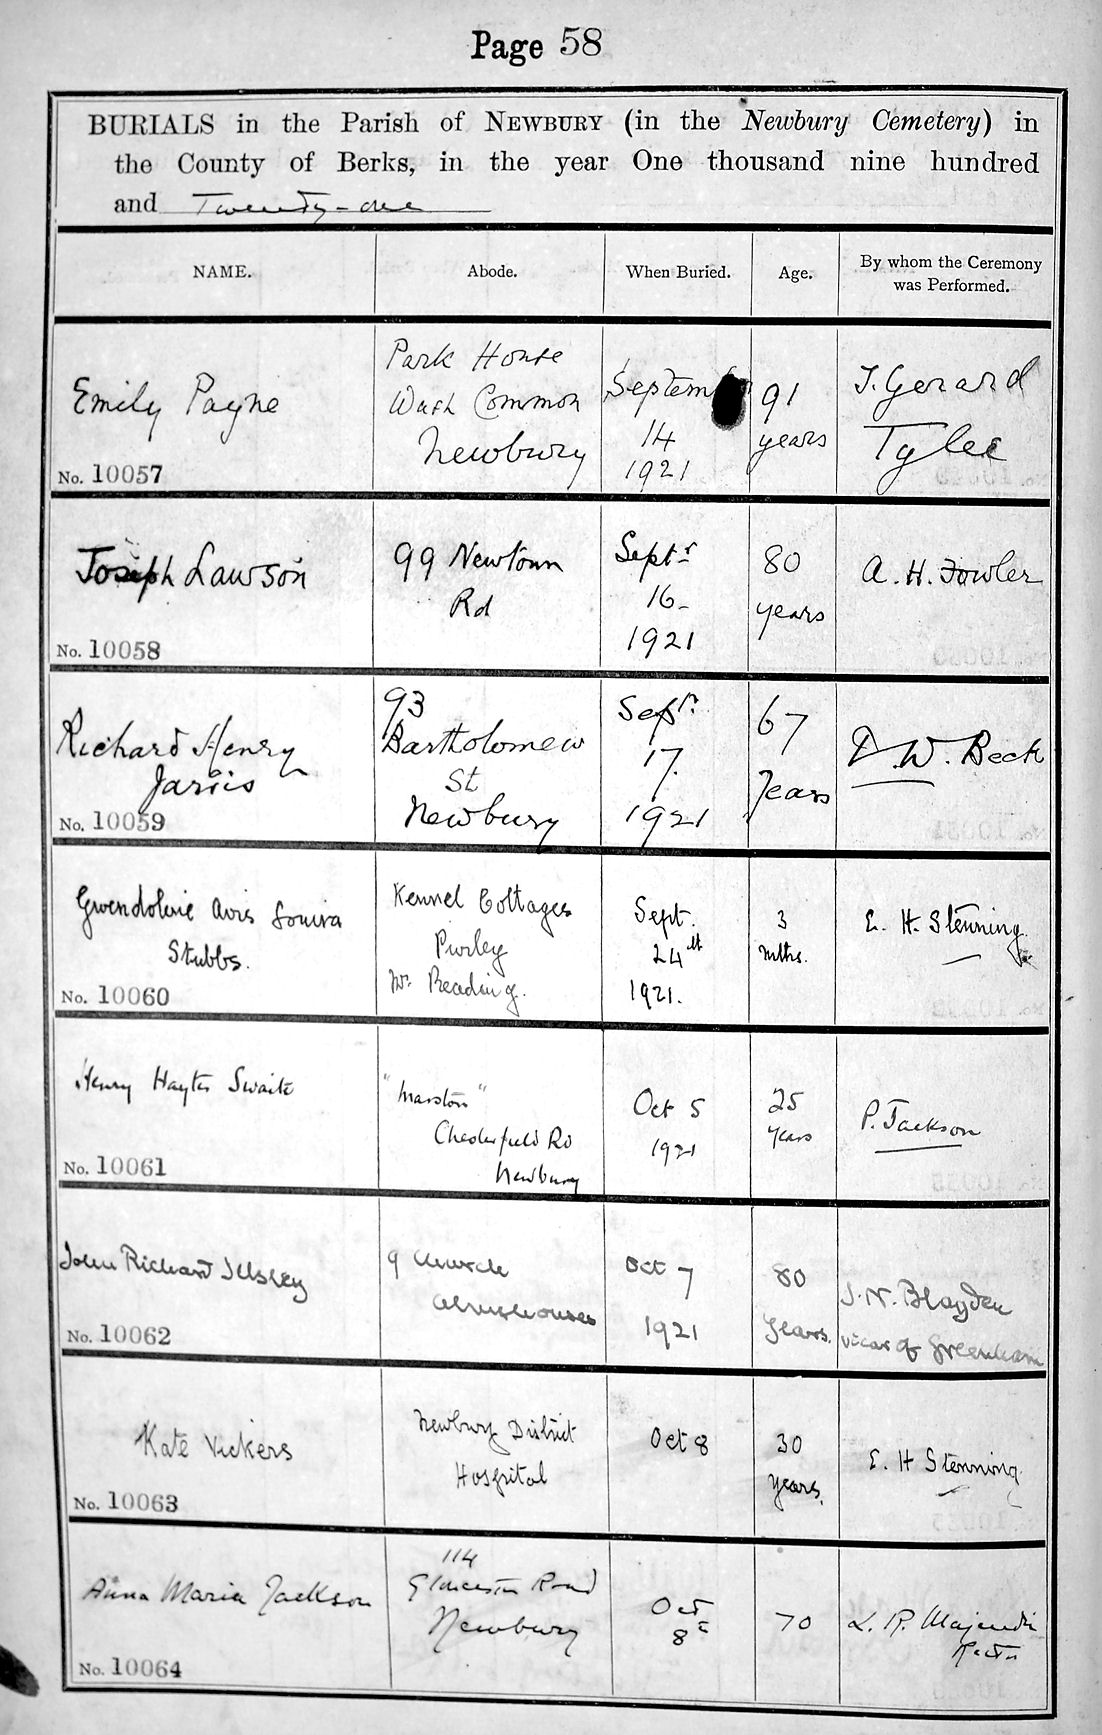 Page 58
BURIALS in the Parish of NEWBURY (in the Newbury Cemetery) in
the County of Berks, in the year One thousand nine hundred
and Twenty-one
NAME.
Abode.
When Buried.
Age.
By whom the Ceremony
was Performed.
Emily Payne
No. 10057
Park House
Wash Common
Newbury
September
14
1921
91
years
J. Gerard
Tylee
Joseph Lawson
No. 10058
99 Newtown
Rd
Septr
16
1921
80
years
A. H. Fowler
Richard Henry
Jarvis
No. 10059
93
Bartholomew
St
Newbury
Septr
17.
1921
67
Years
D. W. Beck
Gwendoline Avis Louisa
Stubbs.
No. 10060
Kennel Cottages
Purley
Nr. Reading.
Sept.
24th
1921.
3
mths.
E. H. Stenning
Henry Hayter Swaite
No. 10061
"Marston"
Chesterfield Rd
Newbury
Oct 5
1921
25
years
P. Jackson
John Richard Illsley
No. 10062
9 Church
Almshouses
Oct 7
1921
80
Years.
J. N. Blagden
Vicar of Greenham
Kate Vickers
No. 10063
Newbury District
Hospital
Oct 8
30
years.
E. H Stenning
Anna Maria Jackson
No. 10064
114
Gloucester Road
Newbury
Oct
8
70
L. R. Majendie
Rector